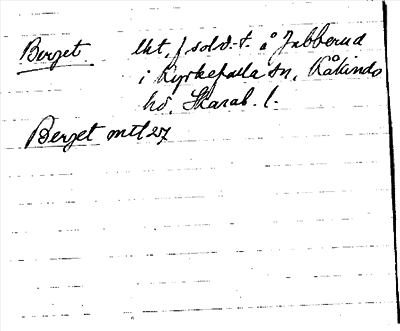 Berget lht, f sold.-t. å Jabberud
i Kyrkefalla sn, Kåkinds
hd. Skarab. l.
Berget mtl 27